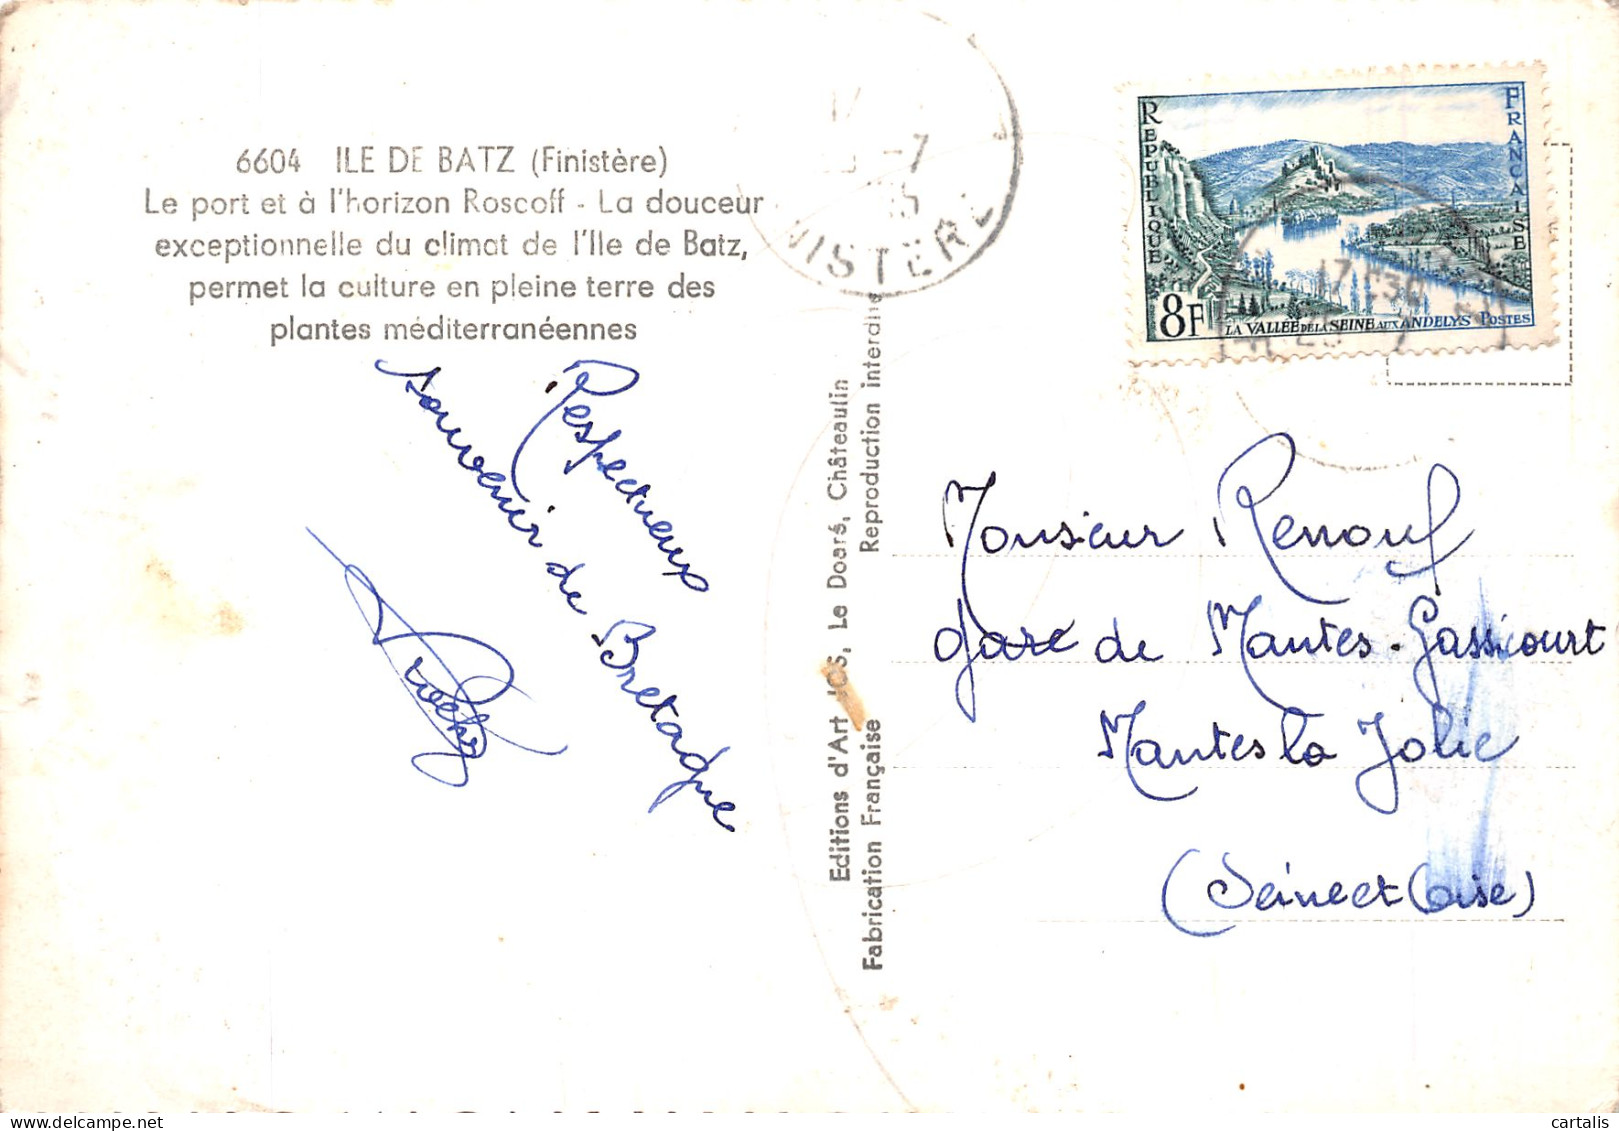 6604 ILE DE BATZ (Finistère)
Le port et à l'horizon Roscoff - La douceur
exceptionnelle du climat de l'Ile de Batz,
permet la culture en pleine terre des
plantes méditerranéennes
Respectueux
souvenir de Bretagne
Editions d'Art JOS, Le Doaré, Châteaulin
Fabrication Française
Reproduction interdite
-7
NISTÈRE
REPUBLIQUE
FRANÇAISE
8F
LA VALLÉE DE LA SEINE AUX ANDELYS POSTES
17H30
25 7
Monsieur Renouf
gare de Mantes-Gassicourt
Mantes la Jolie
(Seine et Oise)
cartalis
www.delcampe.net